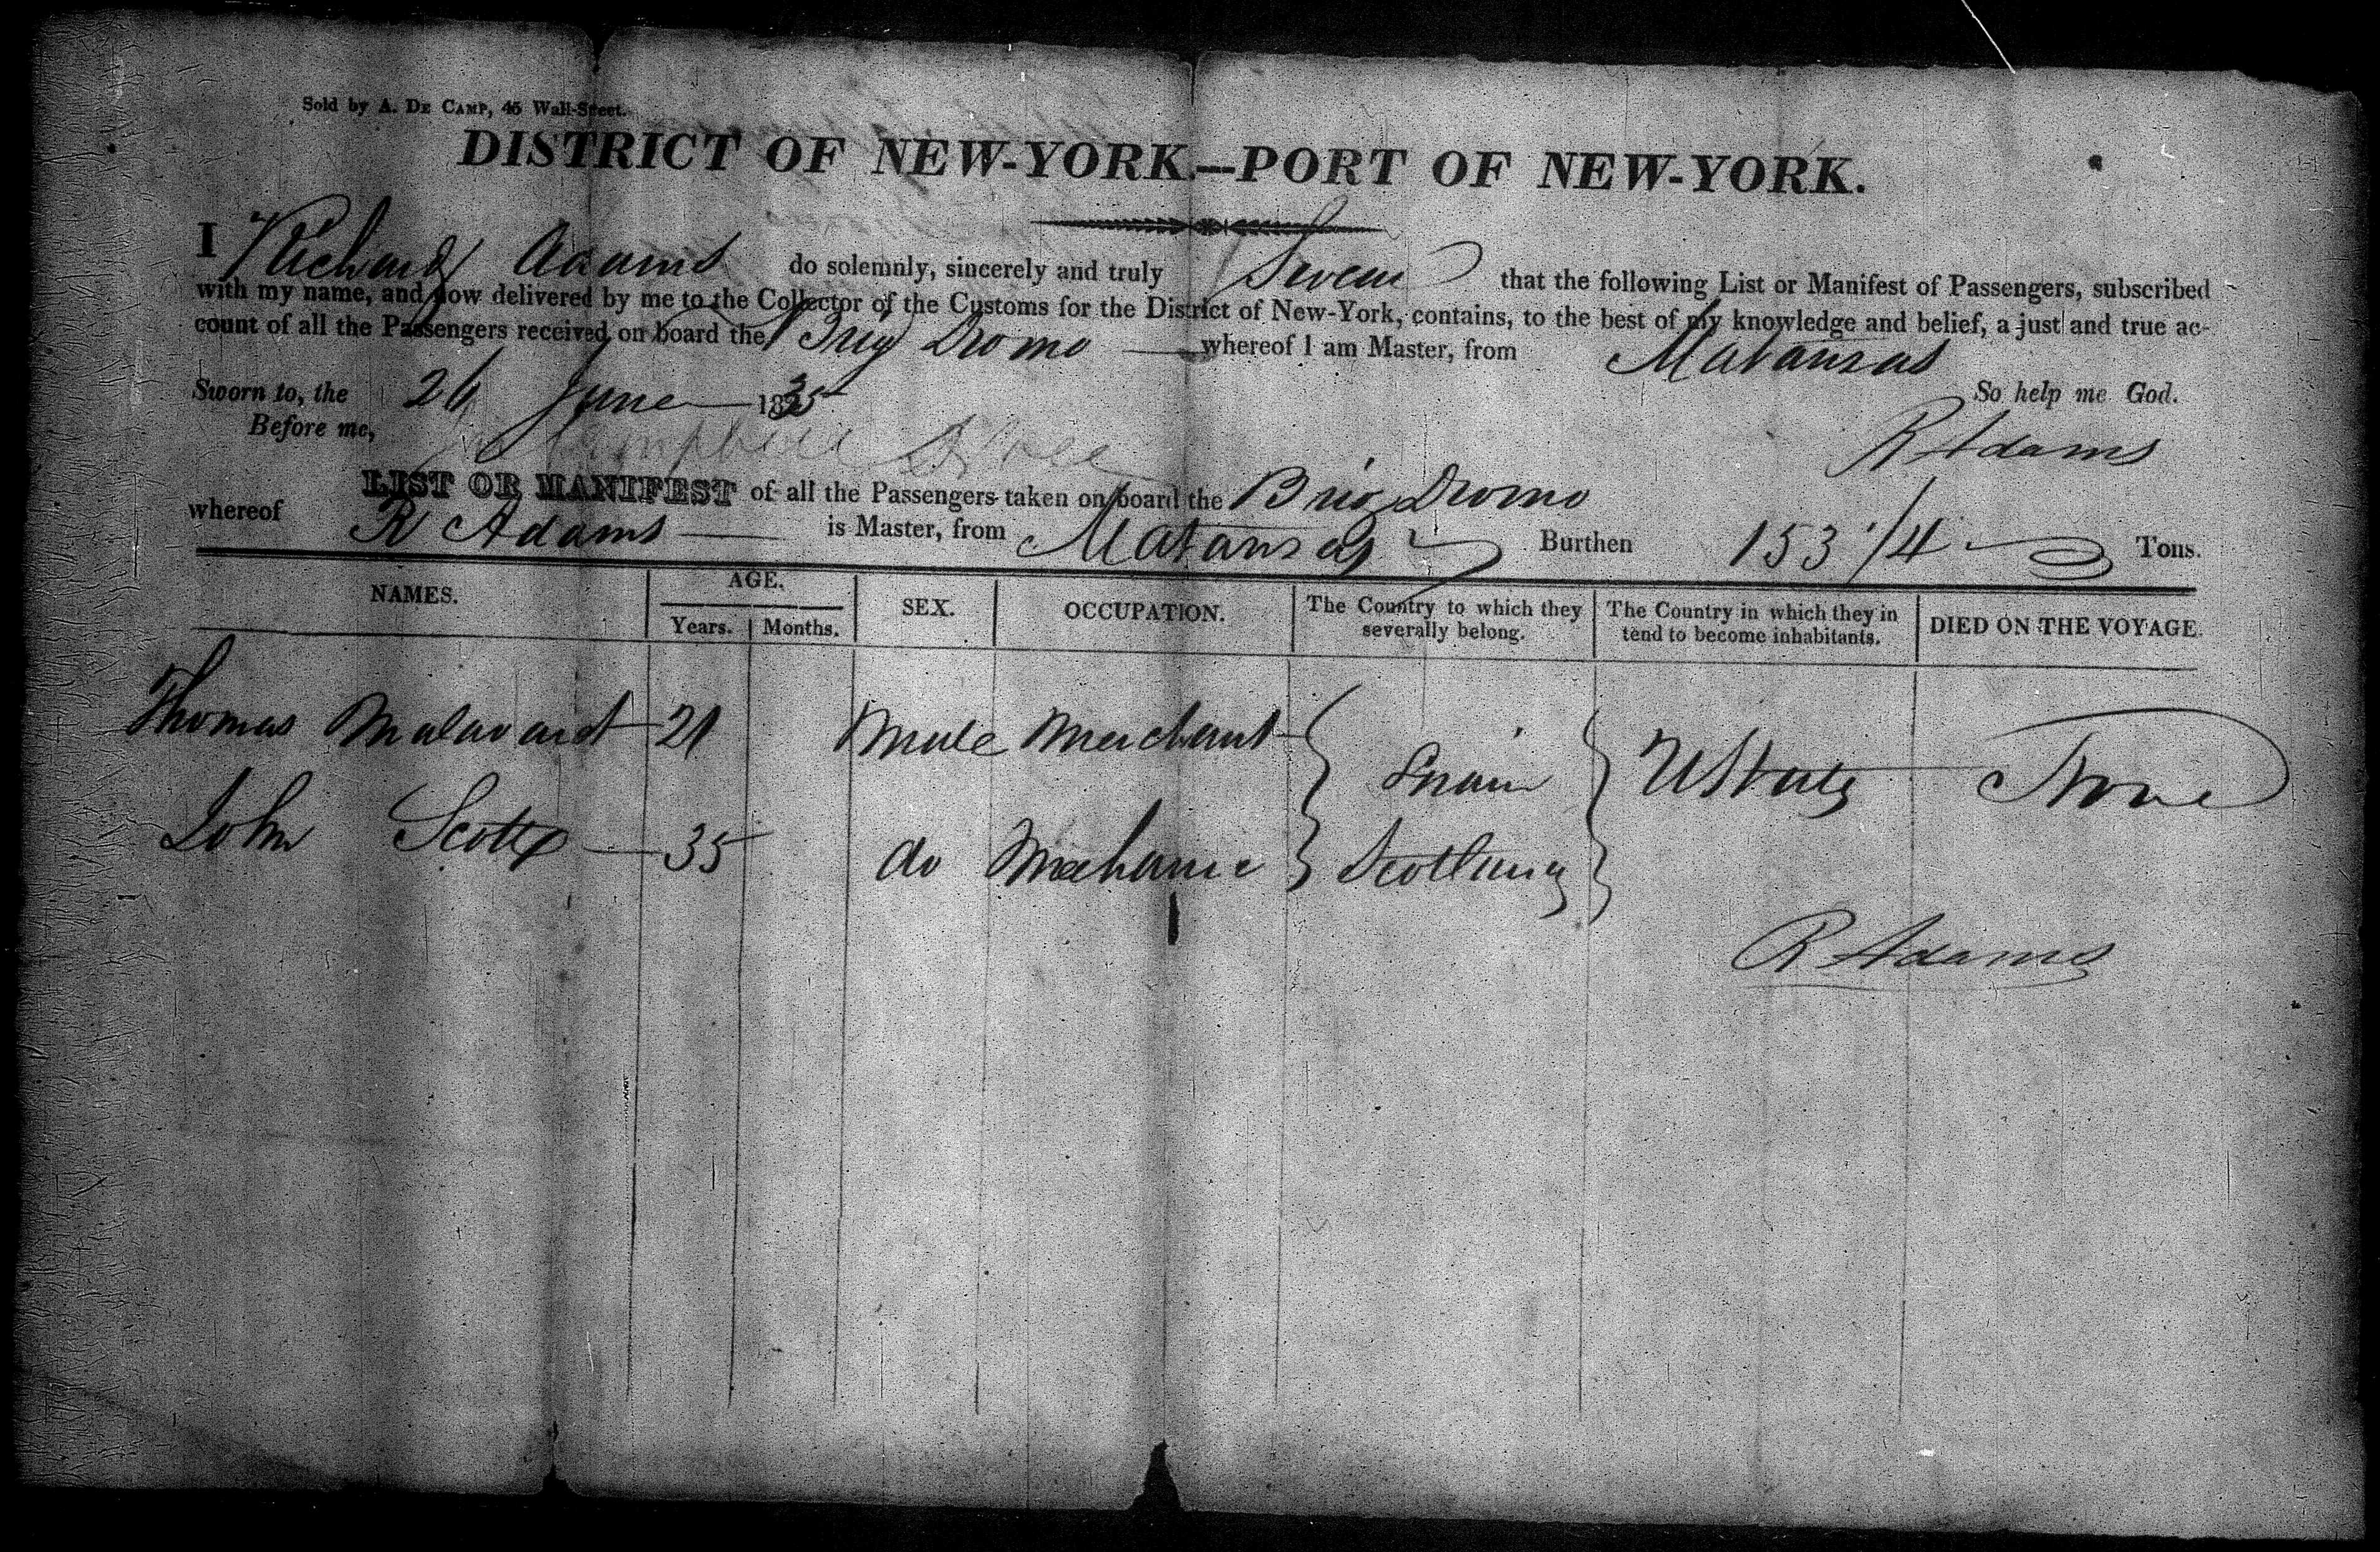 Sold by A. DE CAMP, 45 Wall-Street.
DISTRICT OF NEW-YORK.—PORT OF NEW-YORK.
I Richard Adams do solemnly, sincerely and truly Swear that the following List or Manifest of Passengers, subscribed
with my name, and now delivered by me to the Collector of the Customs for the District of New-York, contains, to the best of my knowledge and belief, a just and true ac-
count of all the Passengers received on board the Brig Dromo whereof I am Master, from Matanzas
Sworn to, the 26 June 1835 So help me God.
Before me, Campbell R Adams
LIST OR MANIFEST of all the Passengers taken on board the Brig Dromo
whereof R Adams is Master, from Matanzas Burthen 153 1/4 Tons.
NAMES. AGE. SEX. OCCUPATION. The Country to which they severally belong. The Country in which they in tend to become inhabitants. DIED ON THE VOYAGE.
Years. Months.
Thomas Malavard 21 Male Merchant Spain UStates None
John Scott 35 do Mechanic Scotland
R Adams